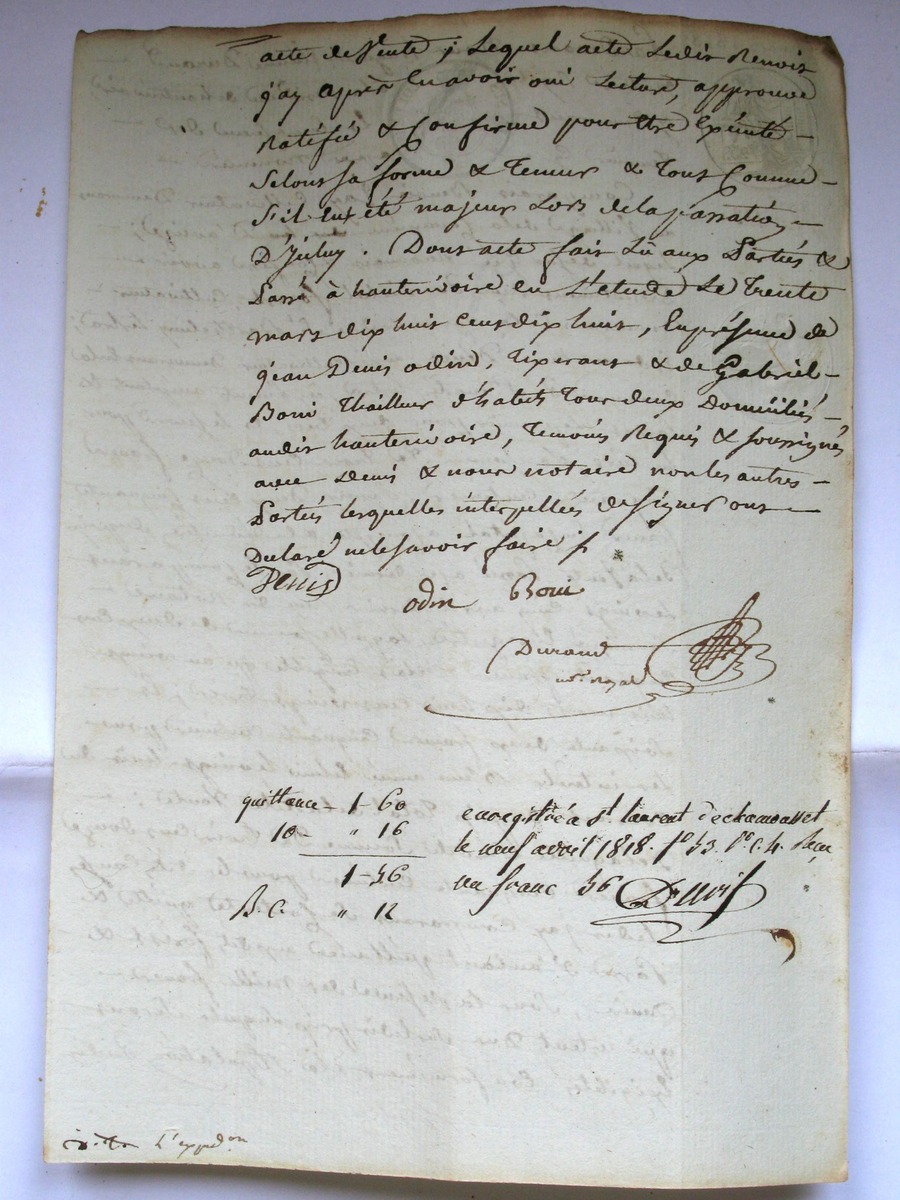 acte de Vente ; Lequel acte Ledit Benoit
gay après En avoir oui Lecture, approuve
Ratéfié & Confirme pour Etre Exécuté -
Selons sa forme & Teneur & Tout Comme -
S'il Eut été majeur Lors de la passation -
D'Iceluy . Dont acte fait Lû aux Parties &
Passé à hauterivoire en L'etude Le Trente
mars dix huit Cent dix huit, En présence de
Jean Denis odin, Tixerant & de Gabriel -
Boni Thailleur d'habits Tous deux Domiciliés -
audit hauterivoire, Temoins Requis & soussignés
avec Denis & nous notaire non les autres -
Parties lesquelles interpellées de signer ont -
Declaré ne le savoir faire
Denis
odin Boni
Durand
nore. royal
quittance - 1 - 60 enregistré a St. laurent de chamousset
10 - " 16 le neuf avril 1818. fo 53. Vo. C. 4. Recu
1 - 56 un franc 56
B. C. " 12
L'expedon